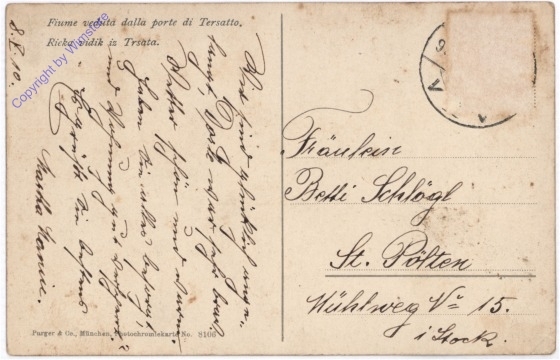 Fiume veduta dalla porte di Tersatto.
Rieka vidik iz Trsata.
8. X. 10.
Copyright by Wumstore
Wir sind glücklich ange-
Wetter schön und warm.
Haben Sie alles besorgt
und Wohnung gut
Es grüßt Sie bestens
Martha
Fräulein
Betti Schlögl
St. Pölten
Mühlweg No 15.
i Stock.
Purger & Co., München, Photochromiekarte No. 8106